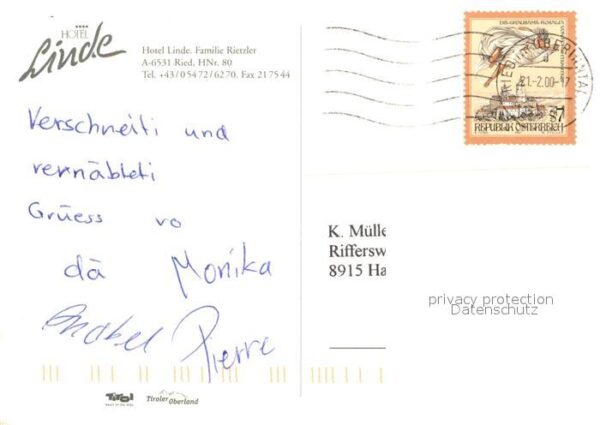 HOTEL
Linde
Hotel Linde. Familie Rietzler
A-6531 Ried, HNr. 80
Tel. +43/05472/6270. Fax 217544
Verschneiti und
vernäbleti
Grüess vo
dä Monika
Pierre
REPUBLIK ÖSTERREICH
S7
21.-2.00-17
K. Mülle
Rifferesw
8915 Ha
privacy protection
Datenschutz
Tirol
Tiroler
Oberland